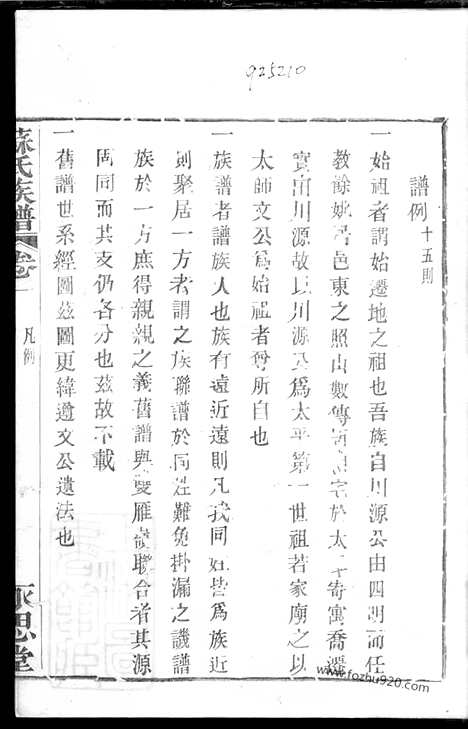 925210
譜例十五則
一始祖者謂始遷地之祖也吾族自川源公由四明而任
教餘姚邑東之照山數傳於太寄寓喬遷
實由川源故以川源公爲太平第一世祖若家廟之以
太師文公爲始祖者尊所自也
一族譜者譜族人也族有遠近遠則凡我同姓皆爲族近
則聚居一方者謂之族聯譜於同姓難免掛漏之譏譜
族於一方庶得親親之義舊譜與雙雁聯合者其源
固同而其支仍各分也茲故不載
一舊譜世系經圖茲圖更緯遵文公遺法也
蘇氏族譜
凡例
永思堂
www.fozhu920.com